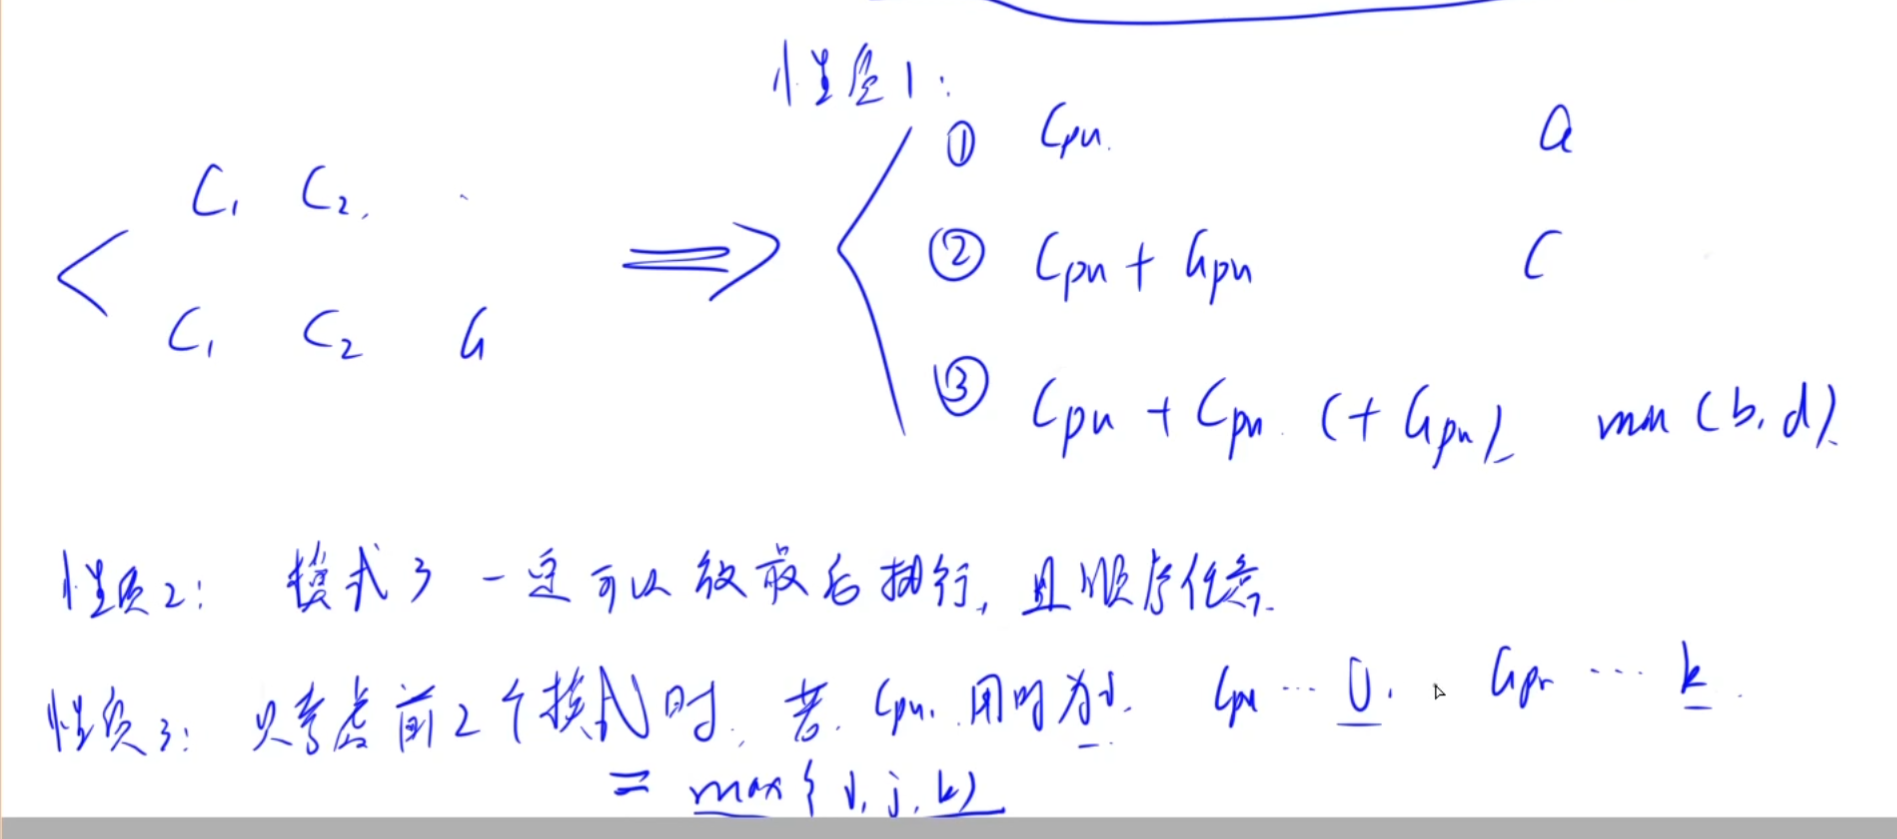 性质1:
① Cpu. a
C₁ C₂.
② Cpu + Gpu C
C₁ C₂ G
③ Cpu + Cpu (+ Gpu) min (b, d).
性质2: 模式3 一定可以放最后执行, 且顺序任意.
性质3: 只考虑前2个模式时, 若 Cpu 用时为i. Cpu … j. Gpu … k.
= max{i, j, k)